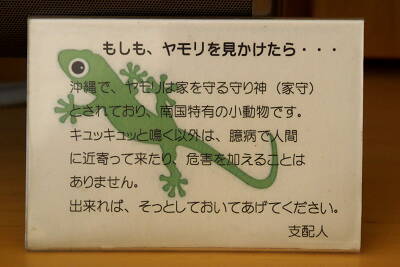 もしも、ヤモリを見かけたら・・・
沖縄で、ヤモリは家を守る守り神（家守）
とされており、南国特有の小動物です。
キュッキュッと鳴く以外は、臆病で人間
に近寄って来たり、危害を加えることは
ありません。
出来れば、そっとしておいてあげてください。
支配人